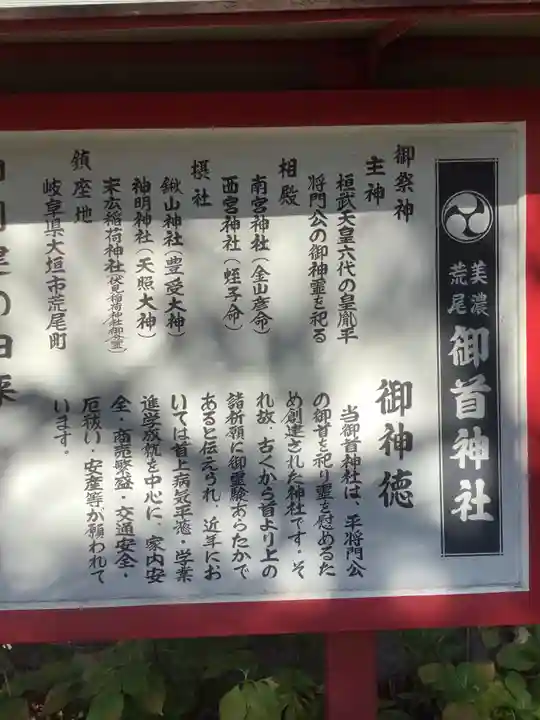 美濃
荒尾
御首神社
御祭神
主神
桓武天皇六代の皇胤平
将門公の御神霊を祀る
相殿
南宮神社（金山彦命）
西宮神社（蛭子命）
摂社
鍬山神社（豊受大神）
神明神社（天照大神）
末広稲荷神社（伏見稲荷神社御分霊）
鎮座地
岐阜県大垣市荒尾町
御神徳
当御首神社は、平将門公
の御首を祀り霊を慰めるた
め創建された神社です。そ
れ故、古くから首より上の
諸祈願に御霊験あらたかで
あると伝えられ、近年にお
いては首上病気平癒・学業
進学放枕を中心に、家内安
全・商売繁盛・交通安全・
厄祓い・安産等が願われて
います。
建の由来